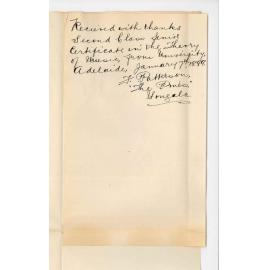 Received with thanks
Second Class Junior
Certificate in the Theory
of Music, from University,
Adelaide, January 7th
F. Patterson,
"The